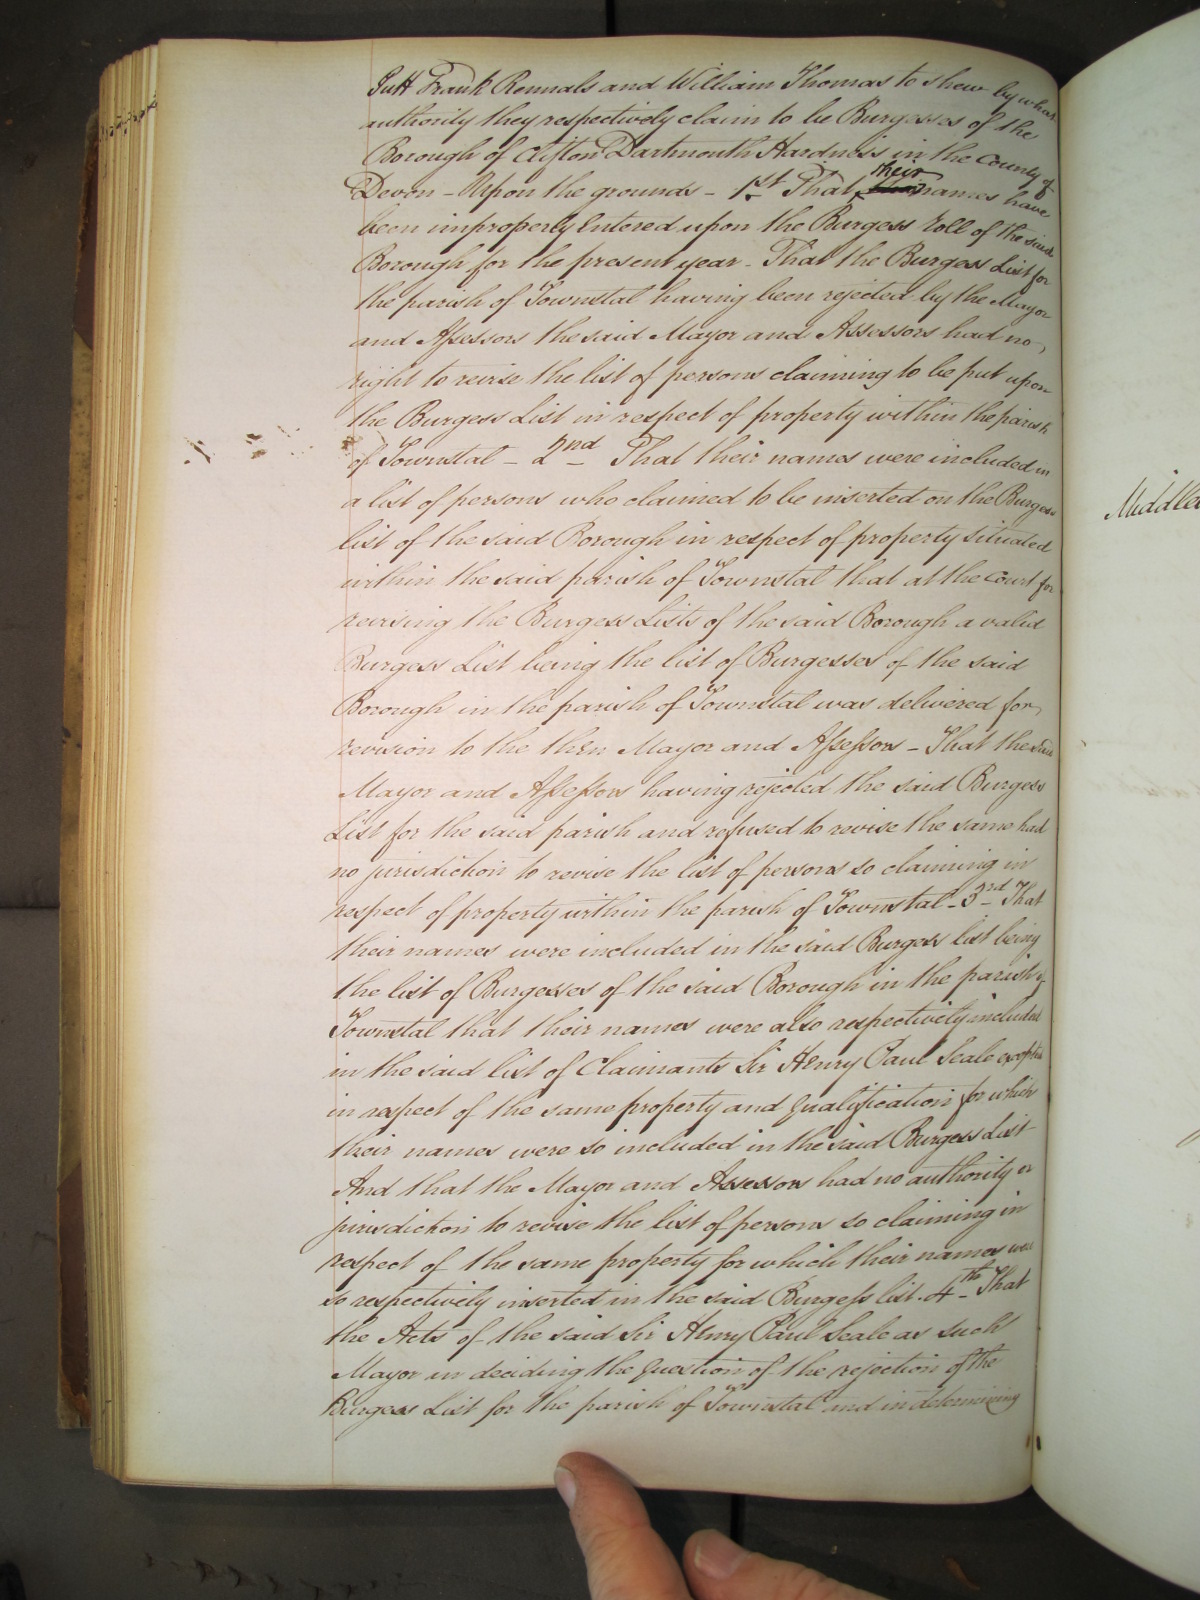 Tutt Frank Rennals and William Thomas to shew by what
authority they respectively claim to be Burgesses of the
Borough of Clifton Dartmouth Hardness in the County of
Devon – Upon the grounds – 1st That their names have
been improperly Entered upon the Burgess Roll of the said
Borough for the present year – That the Burgess List for
the parish of Townstal having been rejected by the Mayor
and Assessors the said Mayor and Assessors had no
right to revise the list of persons claiming to be put upon
the Burgess List in respect of property within the parish
of Townstal – 2nd That their names were included in
a list of persons who claimed to be inserted on the Burgess
list of the said Borough in respect of property situated
within the said parish of Townstal that at the Court for
revising the Burgess Lists of the said Borough a valid
Burgess List being the list of Burgesses of the said
Borough in the parish of Townstal was delivered for
revision to the then Mayor and Assessors – That the said
Mayor and Assessors having rejected the said Burgess
List for the said parish and refused to revise the same had
no jurisdiction to revise the list of persons so claiming in
respect of property within the parish of Townstal – 3rd That
their names were included in the said Burgess list being
the list of Burgesses of the said Borough in the parish of
Townstal that their names were also respectively included
in the said list of Claimants Sir Henry Paul Seale excepted
in respect of the same property and qualification for which
their names were so included in the said Burgess List
And that the Mayor and Assessors had no authority or
jurisdiction to revise the list of persons so claiming in
respect of the same property for which their names were
so respectively inserted in the said Burgess list. 4th That
the Acts of the said Sir Henry Paul Seale as such
Mayor in deciding the question of the rejection of the
Burgess List for the parish of Townstal and in determining